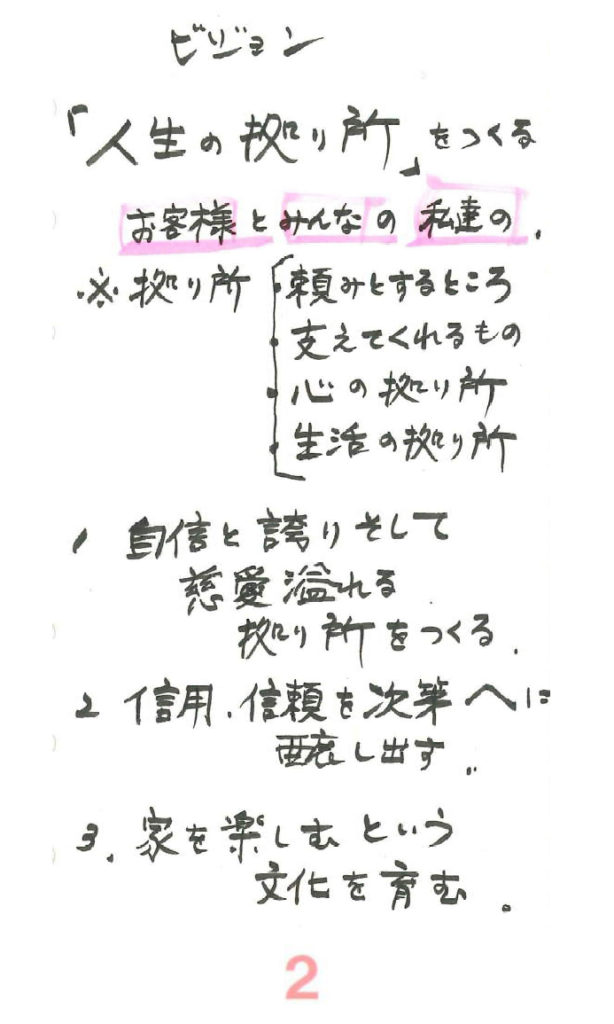 ビジョン
「人生の拠り所」をつくる
お客様とみんなの私達の.
※拠り所
・頼みとするところ
・支えてくれるもの
・心の拠り所
・生活の拠り所
1 自信と誇りそして
慈愛溢れる
拠り所をつくる.
2 信用.信頼を次第へに
醸し出す..
3. 家を楽しむという
文化を育む.
2